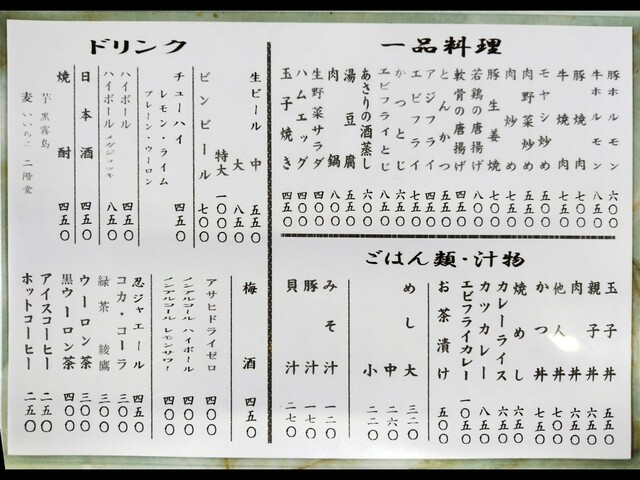 一品料理
豚ホルモン 六〇〇
牛ホルモン
豚焼肉
牛焼肉
モヤシ炒め
肉野菜炒め
肉炒め
豚生姜焼
若鶏の唐揚げ
軟骨の唐揚げ
とんかつ
アジフライ
エビフライ
かつとじ
エビフライとじ
あさりの酒蒸し 六〇〇
湯豆腐 五五〇
肉鍋 八〇〇
生野菜サラダ
ハムエッグ 四五〇
玉子焼き 四五〇
ごはん類・汁物
玉子丼 五五〇
親子丼 六五〇
肉丼 六五〇
他人丼 六五〇
かつ丼 七五〇
焼めし 六五〇
カレーライス 六五〇
カツカレー 八五〇
エビフライカレー 一〇五〇
お茶漬け 五〇〇
めし 大 三二〇
中 二六〇
小 二二〇
みそ汁 一二〇
豚汁 一七〇
貝汁 二七〇
ドリンク
生ビール 中 五五〇
大 八五〇
特大 一〇〇〇
ビンビール 七〇〇
チューハイ 四五〇
レモン・ライム
プレーン・ウーロン
ハイボール 四五〇
ハイボール メガジョッキ 八五〇
日本酒 四五〇
焼酎 四五〇
芋 黒霧島
麦 いいちこ 二階堂
梅酒 四五〇
アサヒドライゼロ 四〇〇
ノンアルコール ハイボール 四〇〇
ノンアルコール レモンサワー 四〇〇
忍ジャエール 四五〇
コカ・コーラ 三〇〇
緑茶 綾鷹 三〇〇
ウーロン茶 三〇〇
黒ウーロン茶 四〇〇
アイスコーヒー 二五〇
ホットコーヒー 二五〇